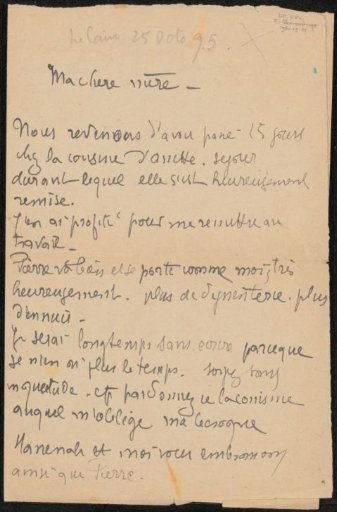 Le Caire 25 Octo 95
Ma chere mère _
Nous revenons d'avoir passé 15 jours
chez la cousine d'Anette. sejour
durant lequel elle s'est heureusement
remise.
J'en ai profité pour me remettre au
travail _
Pierre va bien et se porte comme moi très
heureusement. plus de dysenterie. plus
d'ennui _
Je serai longtemps sans ecrire parceque
je n'en ai plus le temps. soyez sans
inquietude. et pardonnez le laconisme
auquel m'oblige ma besogne
Hanenah et moi vous embrassons
ainsi que Pierre.